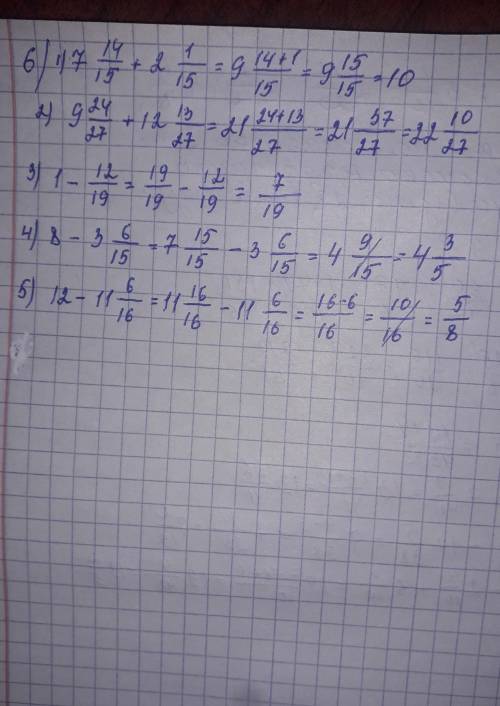 6) 1) 7 14/15 + 2 1/15 = 9 14+1/15 = 9 15/15 = 10
2) 9 24/27 + 12 13/27 = 21 24+13/27 = 21 37/27 = 22 10/27
3) 1 - 12/19 = 19/19 - 12/19 = 7/19
4) 8 - 3 6/15 = 7 15/15 - 3 6/15 = 4 9/15 = 4 3/5
5) 12 - 11 6/16 = 11 16/16 - 11 6/16 = 16-6/16 = 10/16 = 5/8